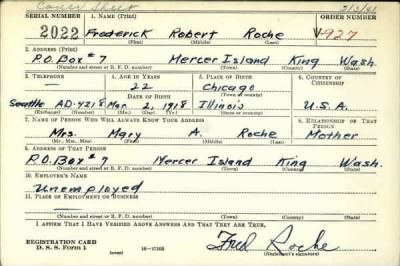 Cover Sheet
2/3/41
SERIAL NUMBER 1. NAME (Print) ORDER NUMBER
2022 Frederick Robert Roche V-927
(First) (Middle) (Last)
2. ADDRESS (Print)
P.O. Box #7 Mercer Island King Wash.
(Number and street or R. F. D. number) (Town) (County) (State)
3. TELEPHONE 4. AGE IN YEARS 5. PLACE OF BIRTH 6. COUNTRY OF CITIZENSHIP
— 22 Chicago
DATE OF BIRTH (Town or county)
Seattle AD-4218 Mar. 2, 1918 Illinois U.S.A.
(Exchange) (Number) (Mo.) (Day) (Yr.) (State or country)
7. NAME OF PERSON WHO WILL ALWAYS KNOW YOUR ADDRESS 8. RELATIONSHIP OF THAT PERSON
Mrs. Mary A. Roche Mother
(Mr., Mrs., Miss) (First) (Middle) (Last)
9. ADDRESS OF THAT PERSON
P.O. Box #7 Mercer Island King Wash.
(Number and street or R. F. D. number) (Town) (County) (State)
10. EMPLOYER'S NAME
Unemployed
11. PLACE OF EMPLOYMENT OR BUSINESS
—
(Number and street or R. F. D. number) (Town) (County) (State)
I AFFIRM THAT I HAVE VERIFIED ABOVE ANSWERS AND THAT THEY ARE TRUE.
REGISTRATION CARD
D. S. S. Form 1 (over) 16—17105 Fred Roche
(Registrant's signature)